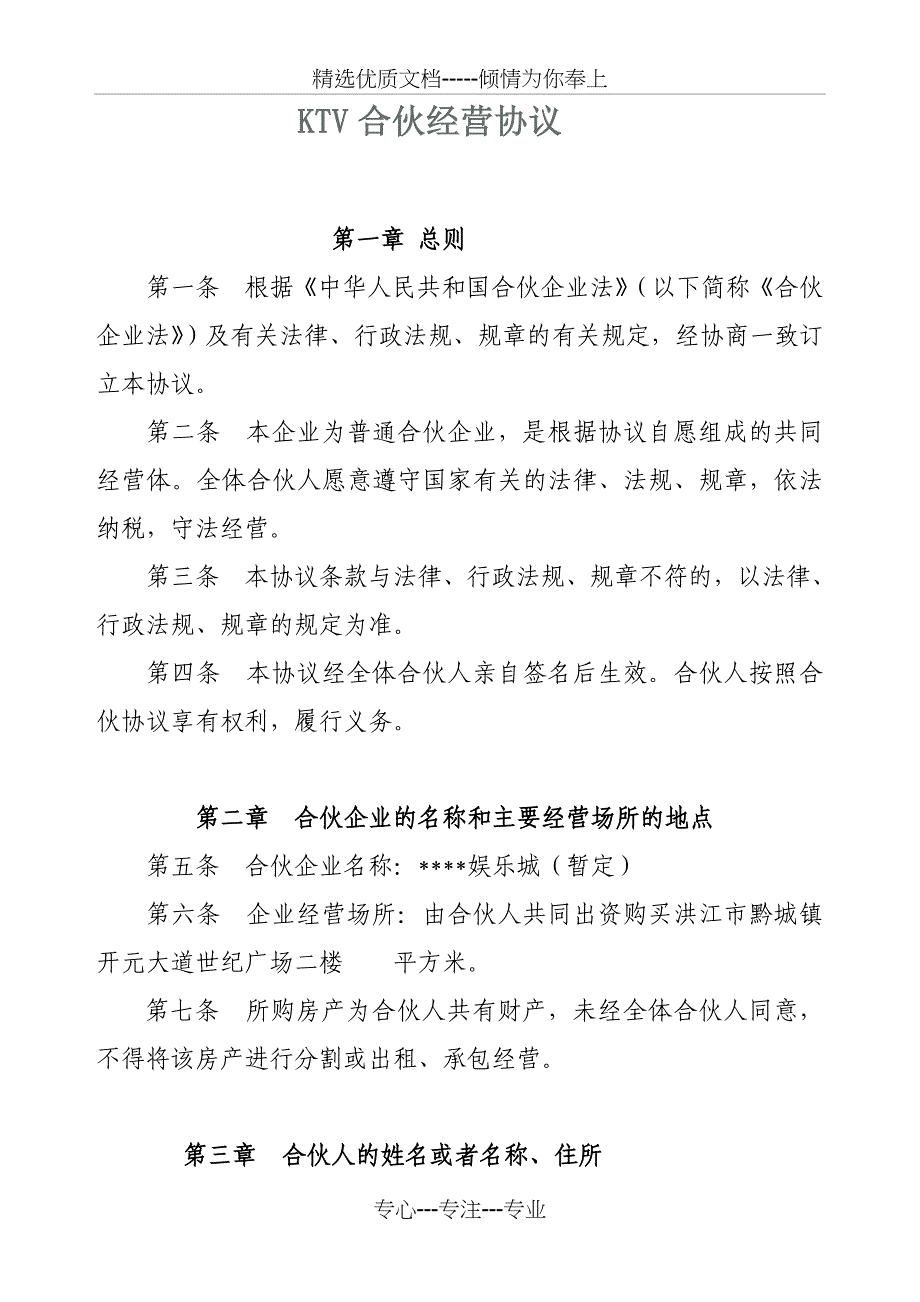 精选优质文档-----倾情为你奉上
KTV 合伙经营协议
第一章 总则
第一条　根据《中华人民共和国合伙企业法》（以下简称《合伙
企业法》）及有关法律、行政法规、规章的有关规定，经协商一致订
立本协议。
第二条　本企业为普通合伙企业，是根据协议自愿组成的共同
经营体。全体合伙人愿意遵守国家有关的法律、法规、规章，依法
纳税，守法经营。
第三条　本协议条款与法律、行政法规、规章不符的，以法律、
行政法规、规章的规定为准。
第四条　本协议经全体合伙人亲自签名后生效。合伙人按照合
伙协议享有权利，履行义务。
第二章　合伙企业的名称和主要经营场所的地点
第五条　合伙企业名称：****娱乐城（暂定）
第六条　企业经营场所：由合伙人共同出资购买洪江市黔城镇
开元大道世纪广场二楼　　平方米。
第七条　所购房产为合伙人共有财产，未经全体合伙人同意，
不得将该房产进行分割或出租、承包经营。
第三章　合伙人的姓名或者名称、住所
专心---专注---专业